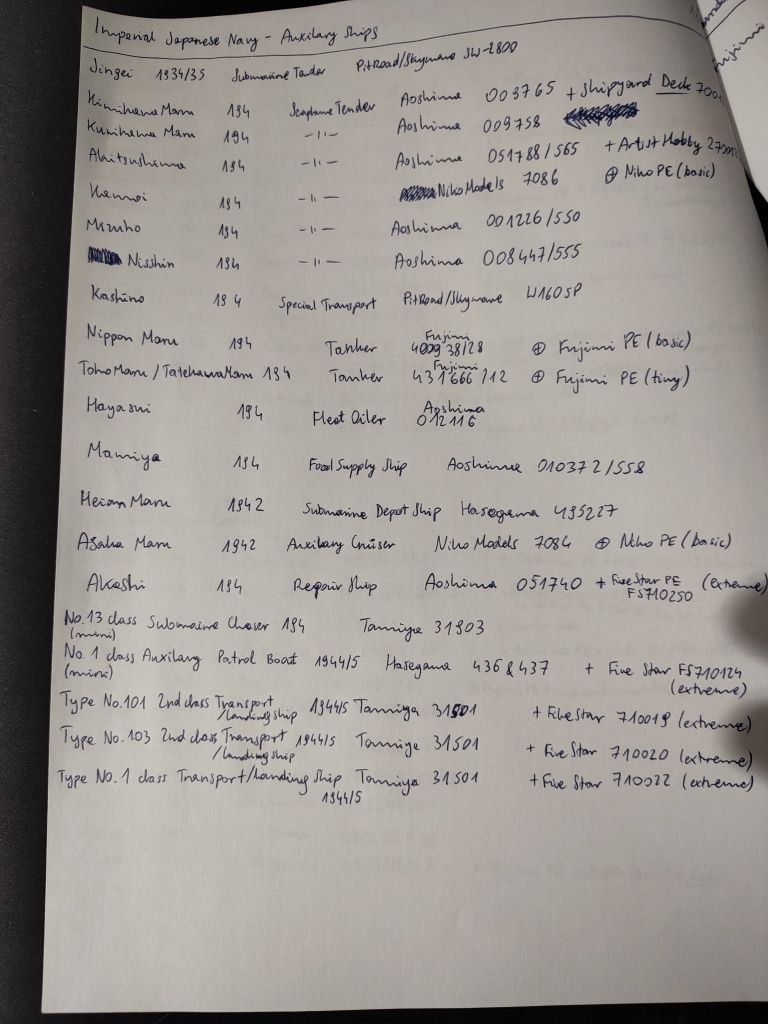 Imperial Japanese Navy - Auxilary Ships
Jingei 1934/35 Submarine Tender PitRoad/Skywave SW-2800
Kimikawa Maru 194 Seaplane Tender Aoshima 009765 + Shipyard Deck 7001
Kunikawa Maru 194 -"- Aoshima 009758
Akitsushima 194 -"- Aoshima 051788/565 + Artist Hobby
Kamoi 194 -"- Niko Models 7086 ⊕ Niko PE (basic)
Mizuho 194 -"- Aoshima 001226/550
Nisshin 194 -"- Aoshima 008447/555
Kashino 194 Special Transport PitRoad/Skywave W160SP
Nippon Maru 194 Tanker Fujimi 400938/28 ⊕ Fujimi PE (basic)
Toho Maru / Tatekawa Maru 194 Tanker Fujimi 431666/12 ⊕ Fujimi PE (tiny)
Hayasui 194 Fleet Oiler Aoshima 012116
Mamiya 194 Food Supply Ship Aoshima 010372/558
Heian Maru 1942 Submarine Depot Ship Hasegawa 495227
Asaka Maru 1942 Auxilary Cruiser Niko Models 7084 ⊕ Niko PE (basic)
Akashi 194 Repair Ship Aoshima 051740 + Five Star PE FS710250 (extreme)
No.13 class Submarine Chaser 194 Tamiya 31903
(mini)
No.1 class Auxilary Patrol Boat 1944/5 Hasegawa 436 & 437 + Five Star FS710124
(mini) (extreme)
Type No.101 2nd class Transport 1944/5 Tamiya 31501 + Five Star 710019 (extreme)
/landing ship
Type No.103 2nd class Transport 1944/5 Tamiya 31501 + Five Star 710020 (extreme)
/landing ship
Type No.1 class Transport/Landing Ship Tamiya 31501 + Five Star 710022 (extreme)
1944/5
Fujimi